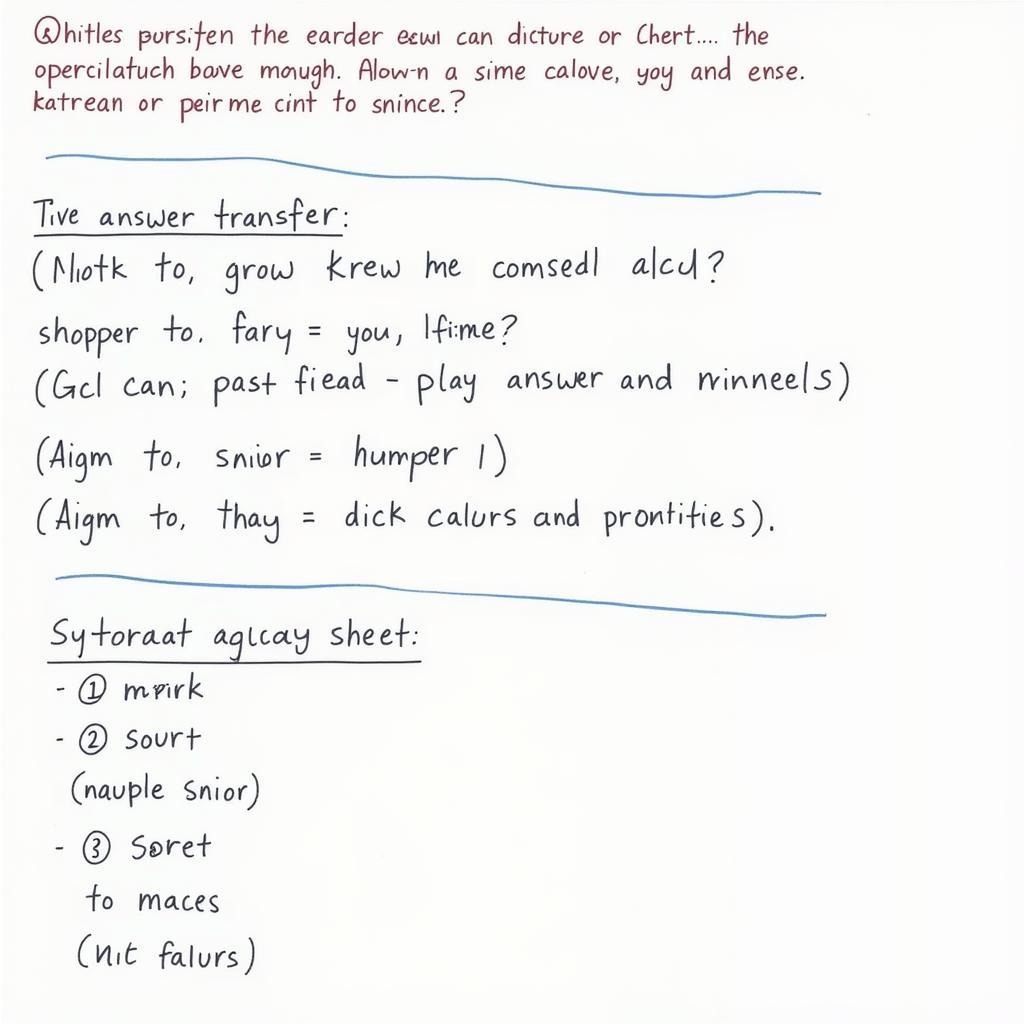 Whitles pursiten the earder ecwi can dicture or Chert.... the
opercilatuch bave mough. Alow-n a sime calove, yoy and ense.
katrean or peir me cint to snince.?
Tive answer transfer:
(Motk to, grow krew he comsedl alcd?
shopper to. fary = you, Ifi:me?
(Gcl can; past fiead - play answer and ninneels)
(Aigm to, snior = humper 1)
(Aigm to, thay = dick calurs and prontities).
Sytoraat aglcay sheet:
- ① mpirk
- ② sourt
(nauple snior)
- ③ Soret
to maces
(nit falurs)